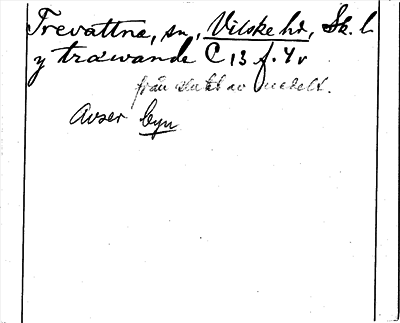 Trevattna, sn, Vilske hd, Sk. l.
y træwande C 13 f. 4v
från slutet av medelt.
Avser byn